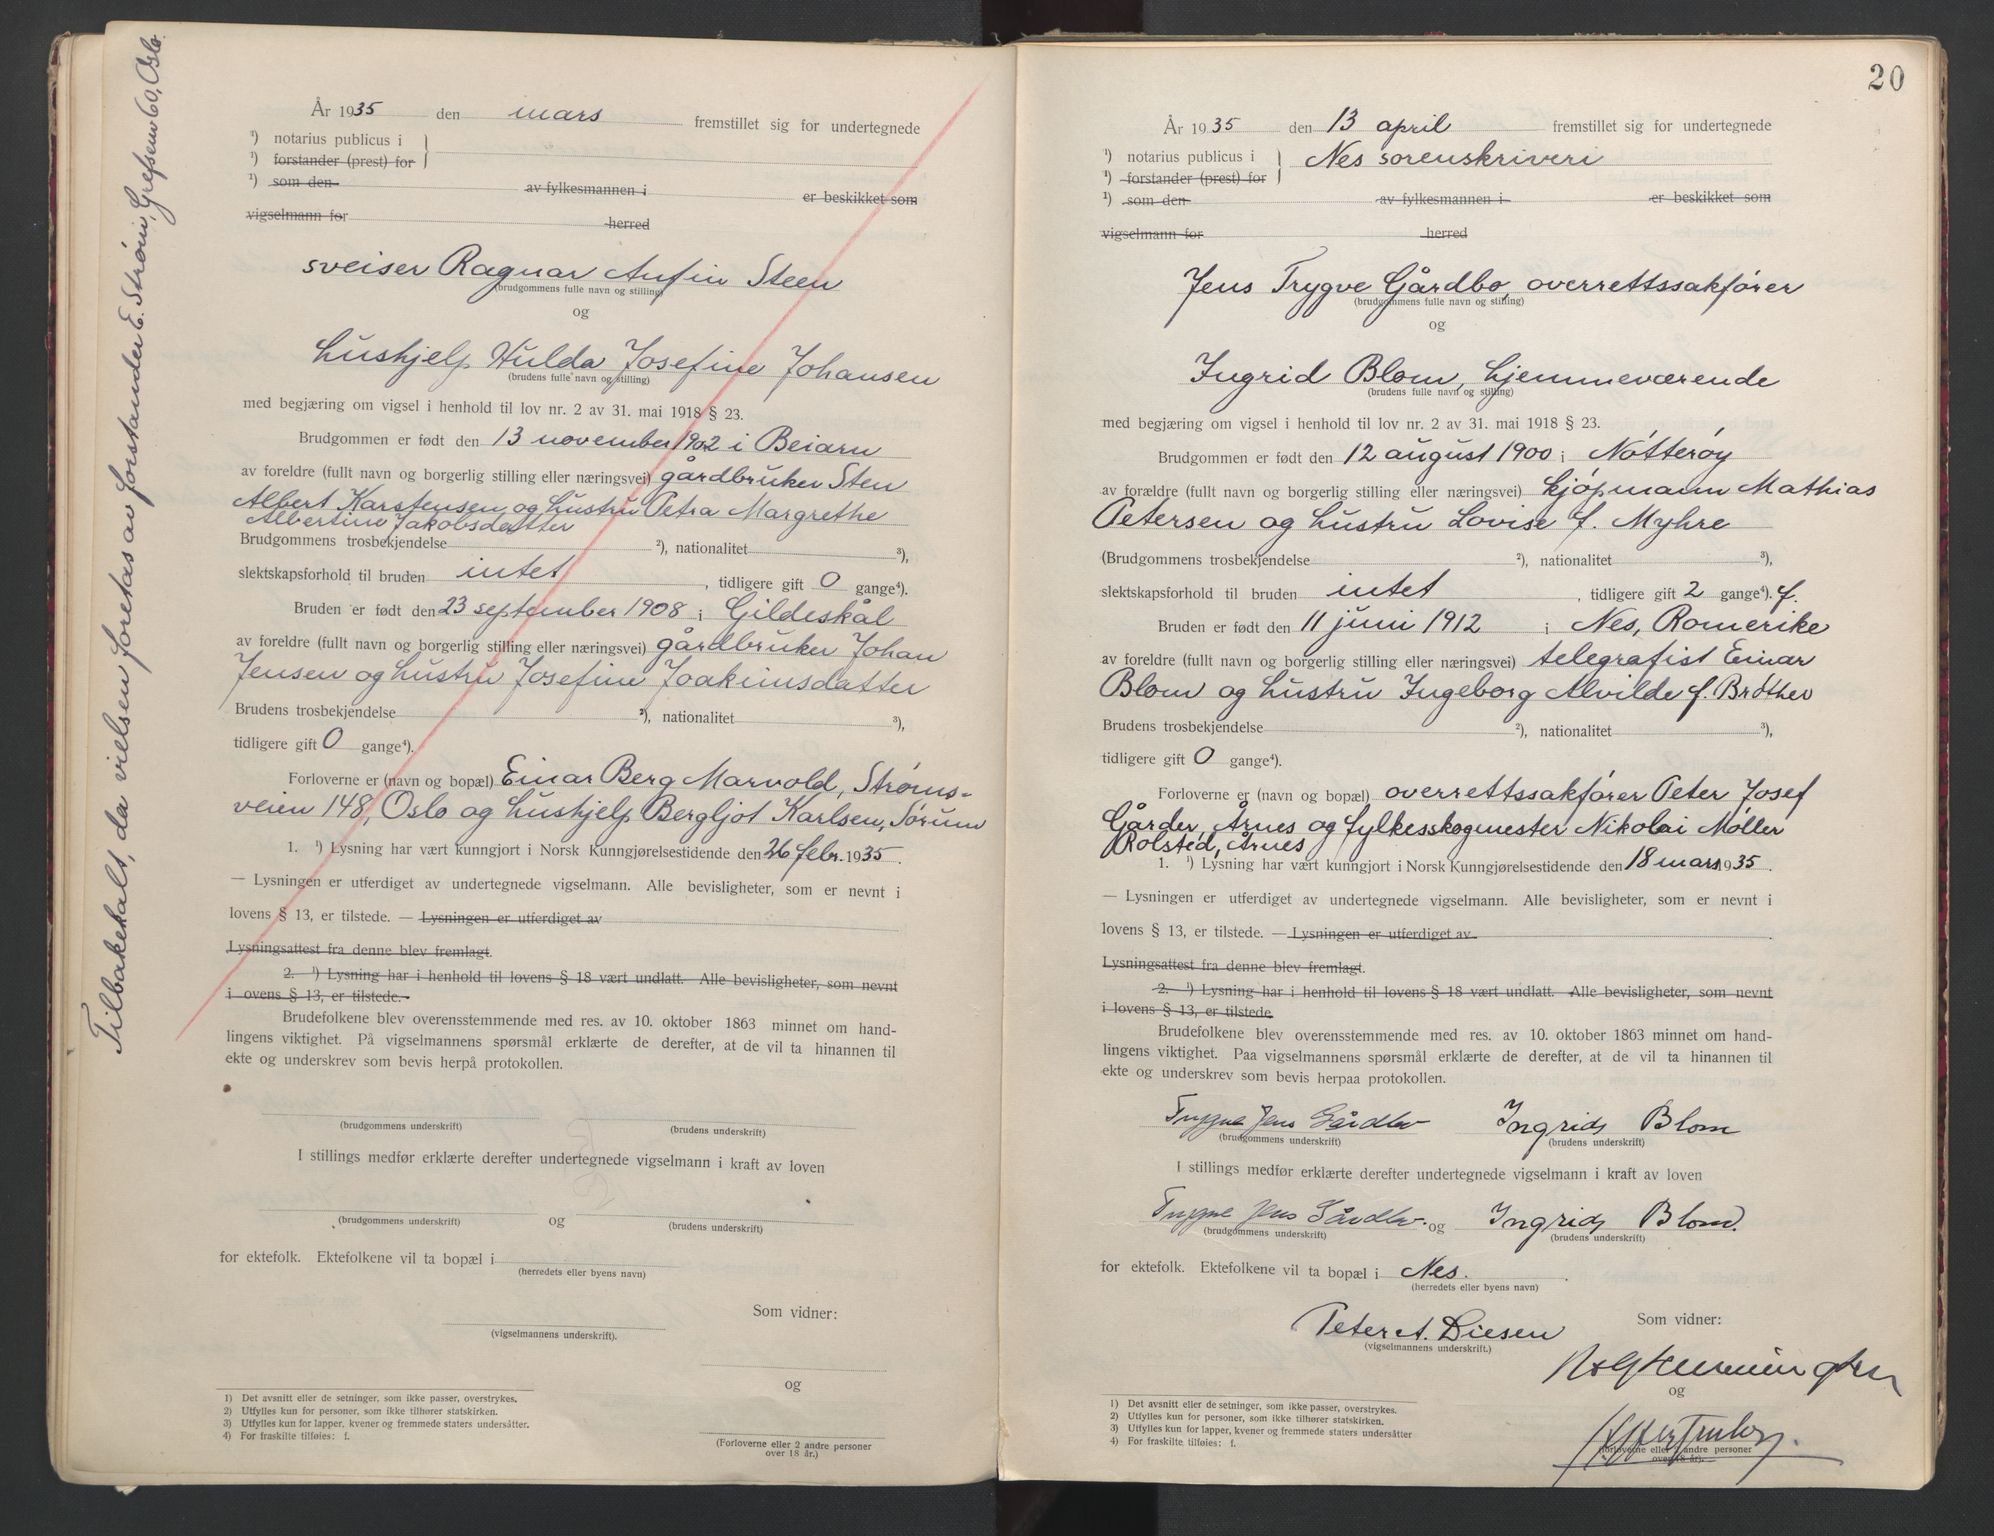 Tilbakekalt, da vielsen foretas av forstander E. Strøm, Grefsenv 60, Oslo.
År 1935 den mars fremstillet sig for undertegnede
¹) notarius publicus i
¹) forstander (prest) for
¹) som den av fylkesmannen i er beskikket som
vigselmann for herred
sveiser Ragnar Anfin Steen
(brudgommens fulle navn og stilling)
og
hushjelp Hulda Josefine Johansen
(brudens fulle navn og stilling)
med begjæring om vigsel i henhold til lov nr. 2 av 31. mai 1918 § 23.
Brudgommen er født den 13 november 1902 i Beiarn
av foreldre (fullt navn og borgerlig stilling eller næringsvei) gårdbruker Sten
Albert Karstensen og hustru Petra Margrethe
Albertine Jakobsdatter
Brudgommens trosbekjendelse ²), nationalitet ³),
slektskapsforhold til bruden intet, tidligere gift 0 gange⁴).
Bruden er født den 23 september 1908 i Gildeskål
av foreldre (fullt navn og borgerlig stilling eller næringsvei) gårdbruker Johan
Jensen og hustru Josefine Joakimsdatter
Brudens trosbekjendelse ²), nationalitet ³),
tidligere gift 0 gange⁴).
Forloverne er (navn og bopæl) Einar Berg Marvold, Strøms-
veien 148, Oslo og hushjelp Bergljot Karlsen, Sørum
1. ¹) Lysning har vært kunngjort i Norsk Kunngjørelsestidende den 26 febr. 1935.
— Lysningen er utferdiget av undertegnede vigselmann. Alle bevisligheter, som er nevnt i
lovens § 13, er tilstede. — Lysningen er utferdiget av
Lysningsattest fra denne blev fremlagt.
2. ¹) Lysning har i henhold til lovens § 18 vært undlatt. Alle bevisligheter, som nevnt
i ovens § 13, er tilstede.
Brudefolkene blev overensstemmende med res. av 10. oktober 1863 minnet om hand-
lingens viktighet. På vigselmannens spørsmål erklærte de derefter, at de vil ta hinannen til
ekte og underskrev som bevis herpå protokollen.
(brudgommens underskrift) (brudens underskrift)
I stillings medfør erklærte derefter undertegnede vigselmann i kraft av loven
og
(brudgommens underskrift) (brudens underskrift)
for ektefolk. Ektefolkene vil ta bopæl i
(herredets eller byens navn)
Som vidner:
(vigselmannens underskrift).
og
1) Det avsnitt eller de setninger, som ikke passer, overstrykes.
2) Utfylles kun for personer, som ikke tilhører statskirken.
3) Utfylles kun for lapper, kvener og fremmede staters undersåtter.
4) For fraskilte tilføies: f.
(Forloverne eller 2 andre personer
over 18 år.)
20
År 1935 den 13 april fremstillet sig for undertegnede
¹) notarius publicus i Nes sorenskriveri
¹) forstander (prest) for
¹) som den av fylkesmannen i er beskikket som
vigselmann for herred
Jens Trygve Gårdbo, overrettssakfører
(brudgommens fulle navn og stilling)
og
Ingrid Blom, hjemmeværende
(brudens fulle navn og stilling)
med begjæring om vigsel i henhold til lov nr. 2 av 31. mai 1918 § 23.
Brudgommen er født den 12 august 1900 i Nøtterøy
av forældre (fullt navn og borgerlig stilling eller næringsvei) kjøpmann Mathias
Petersen og hustru Lovise f. Myhre
(Brudgommens trosbekjendelse ²), nationalitet ³),
slektskapsforhold til bruden intet, tidligere gift 2 gange⁴). f.
Bruden er født den 11 juni 1912 i Nes, Romerike
av foreldre (fullt navn og borgerlig stilling eller næringsvei) telegrafist Einar
Blom og hustru Ingeborg Alvilde f. Brøther
Brudens trosbekjendelse ²), nationalitet ³),
tidligere gift 0 gange⁴).
Forloverne er (navn og bopæl) overrettssakfører Peter Josef
Gårder, Årnes og fylkesskogmester Nikolai Møller
Rolsted, Årnes
1. ¹) Lysning har vært kunngjort i Norsk Kunngjørelsestidende den 18 mars 1935.
— Lysningen er utferdiget av undertegnede vigselmann. Alle bevisligheter, som er nevnt i
lovens § 13, er tilstede. — Lysningen er utferdiget av
Lysningsattest fra denne blev fremlagt.
2. ¹) Lysning har i henhold til lovens § 18 vært undlatt. Alle bevisligheter, som nevnt
i lovens § 13, er tilstede.
Brudefolkene blev overensstemmende med res. av 10. oktober 1863 minnet om hand-
lingens viktighet. Paa vigselmannens spørsmål erklærte de derefter, at de vil ta hinannen til
ekte og underskrev som bevis herpaa protokollen.
Trygve Jens Gårdbo Ingrid Blom
(brudgommens underskrift) (brudens underskrift)
I stillings medfør erklærte derefter undertegnede vigselmann i kraft av loven
Trygve Jens Gårdbo og Ingrid Blom.
(brudgommens underskrift) (brudens underskrift)
for ektefolk. Ektefolkene vil ta bopæl i Nes.
(herredets eller byens navn)
Peter A. Diesen Som vidner:
(vigselmannens underskrift.)
og
1) Det avsnitt eller de setninger, som ikke passer, overstrykes.
2) Utfylles kun for personer, som ikke tilhører statskirken.
3) Utfylles kun for lapper, kvener og fremmede staters undersåtter
4) For fraskilte tilføies: f.
(forloverne eller 2 andre personer
over 18 år).